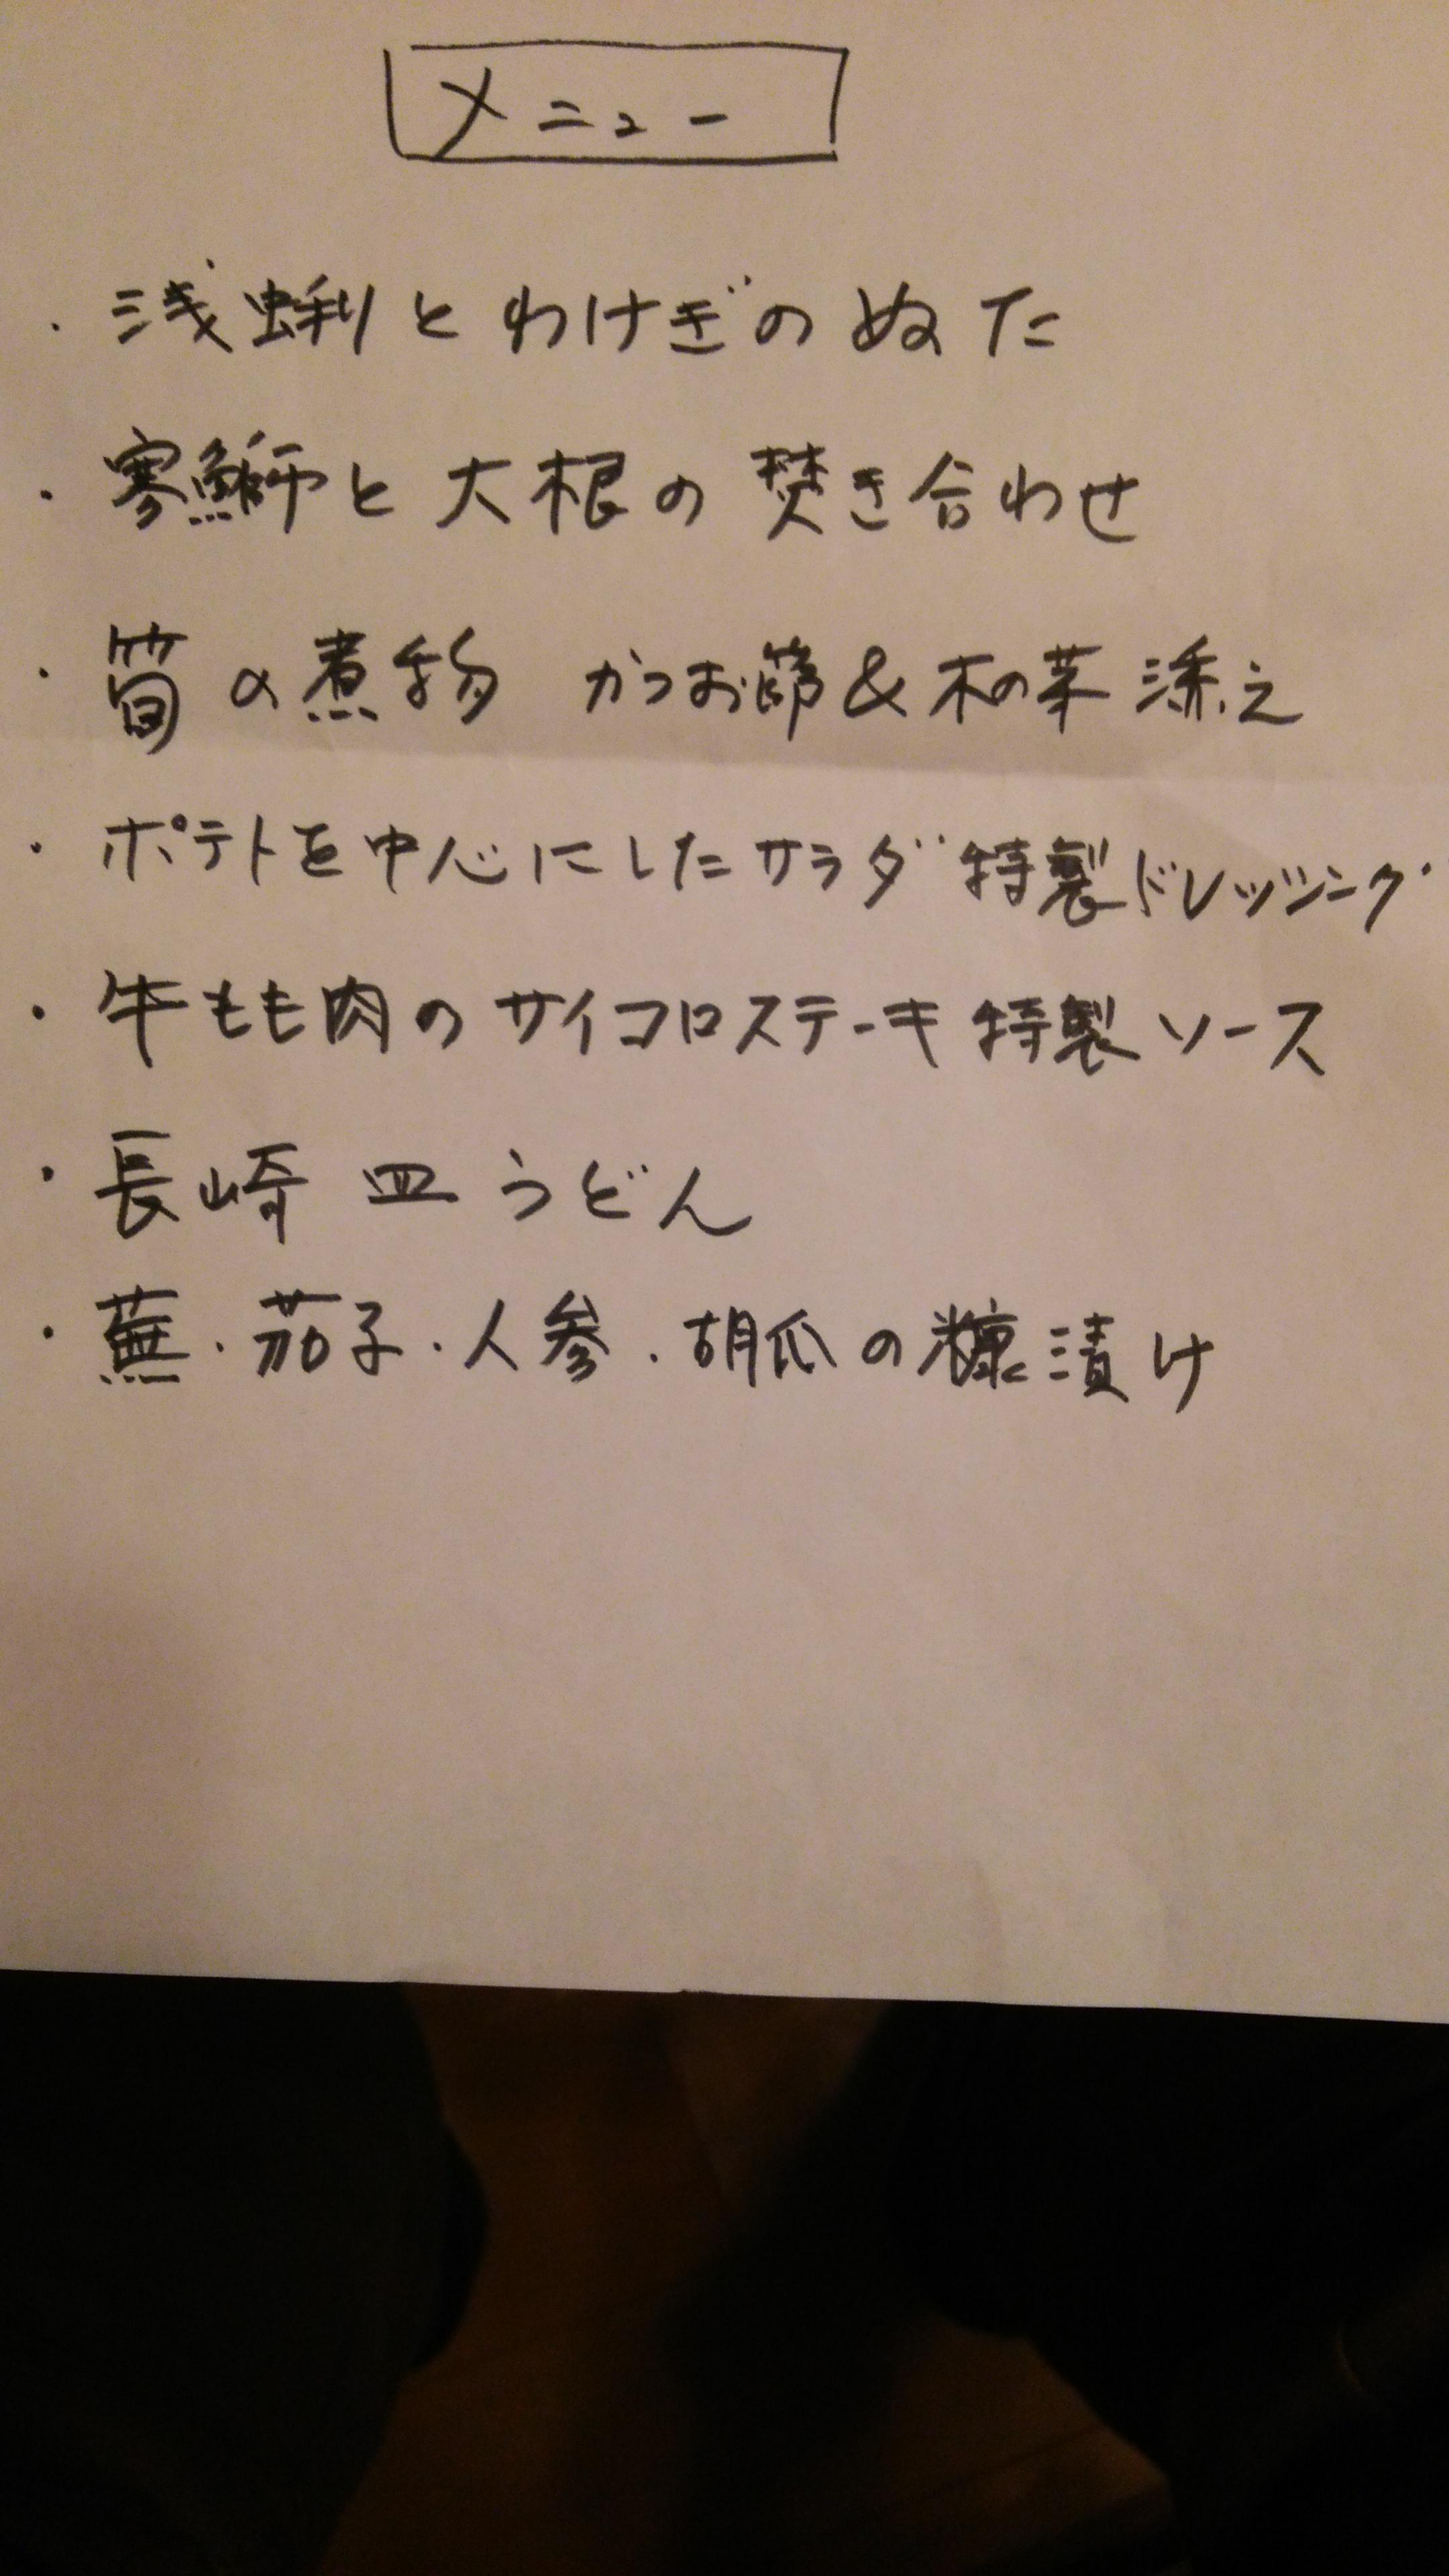 メニュー
・浅蜊とわけぎのぬた
・寒鰤と大根の焚き合わせ
・筍の煮物 かつお節&木の芽添え
・ポテトを中心にしたサラダ 特製ドレッシング
・牛もも肉のサイコロステーキ 特製ソース
・長崎皿うどん
・蕪・茄子・人参・胡瓜の糠漬け